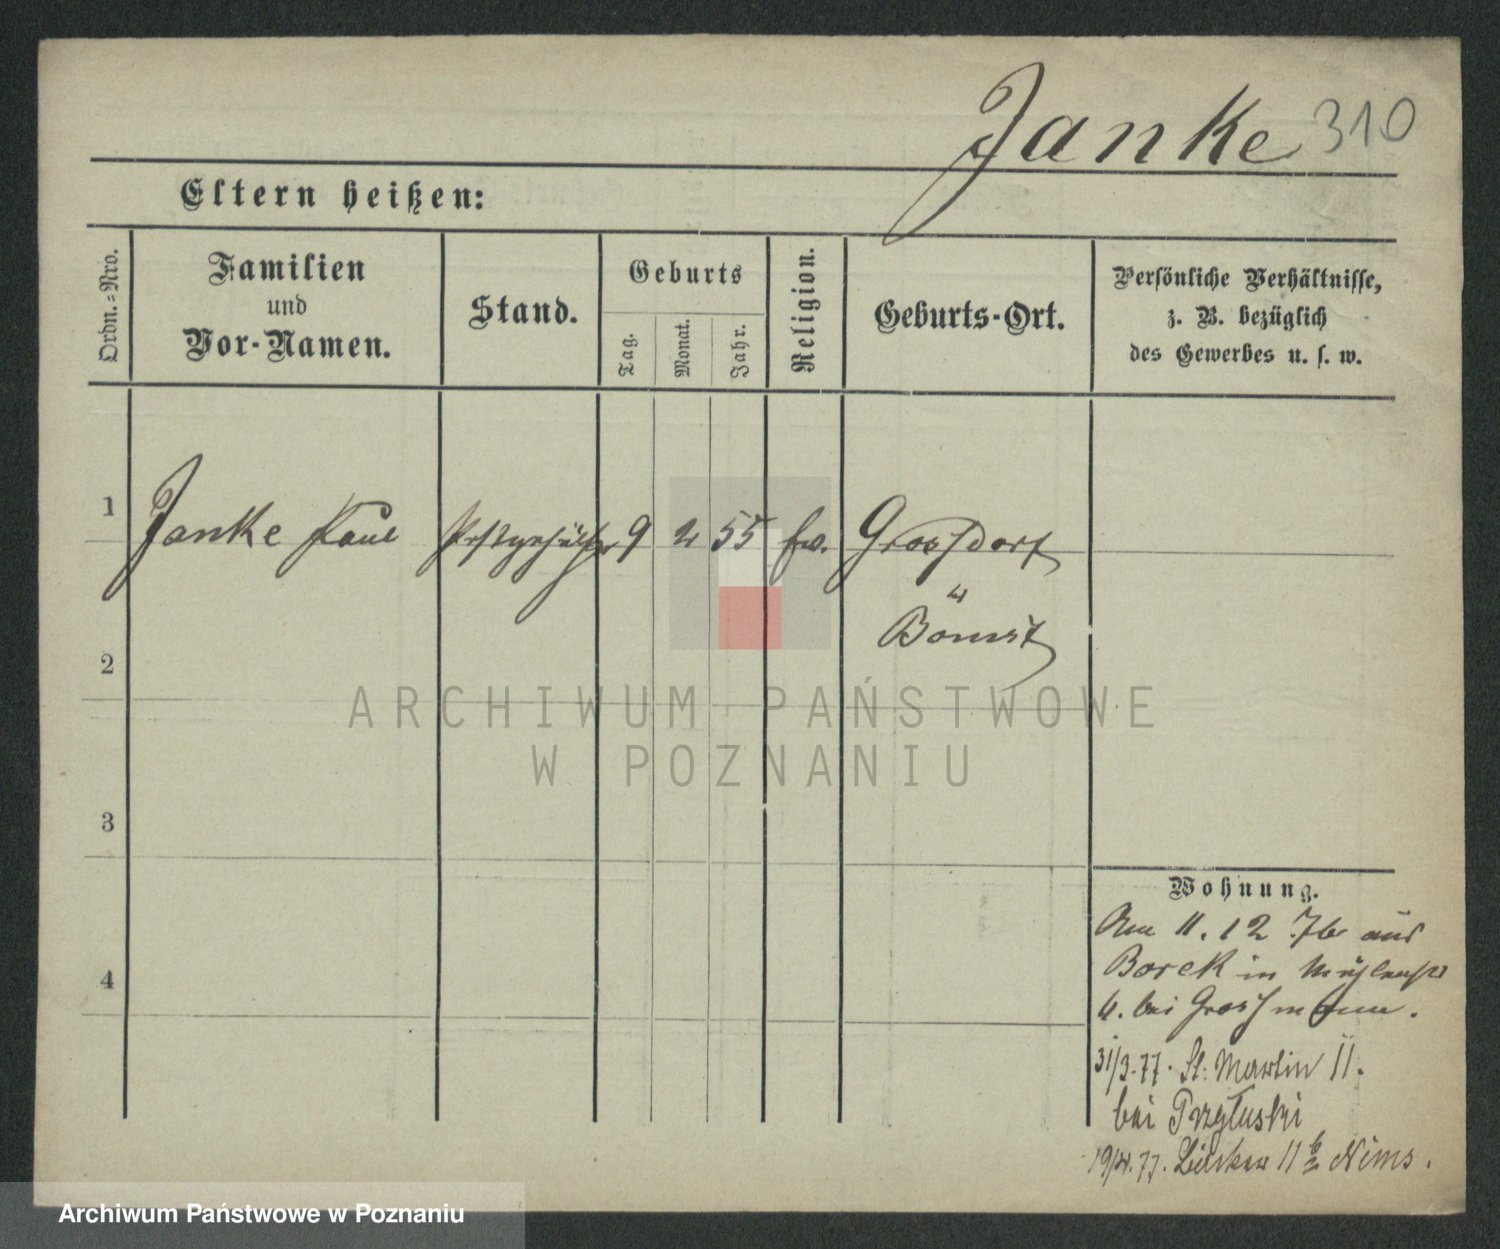 Janke 310
Eltern heißen:
Ordn.=Nro.
Familien
und
Vor-Namen.
Stand.
Geburts
Tag.
Monat.
Jahr.
Religion.
Geburts-Ort.
Persönliche Verhältnisse,
z. B. bezüglich
des Gewerbes u. s. w.
1
Janke Paul Postgehülfe 9 2 55 ev. Grossdorf
Bomst
2
ARCHIWUM PAŃSTWOWE
W POZNANIU
3
4
Wohnung.
Am 11. 12 76 aus
Borek in Mühlenstr
bei Grossmann.
31/3.77. St. Martin 11.
bei Przyluski
19/4.77. 11 Nims.
Archiwum Państwowe w Poznaniu